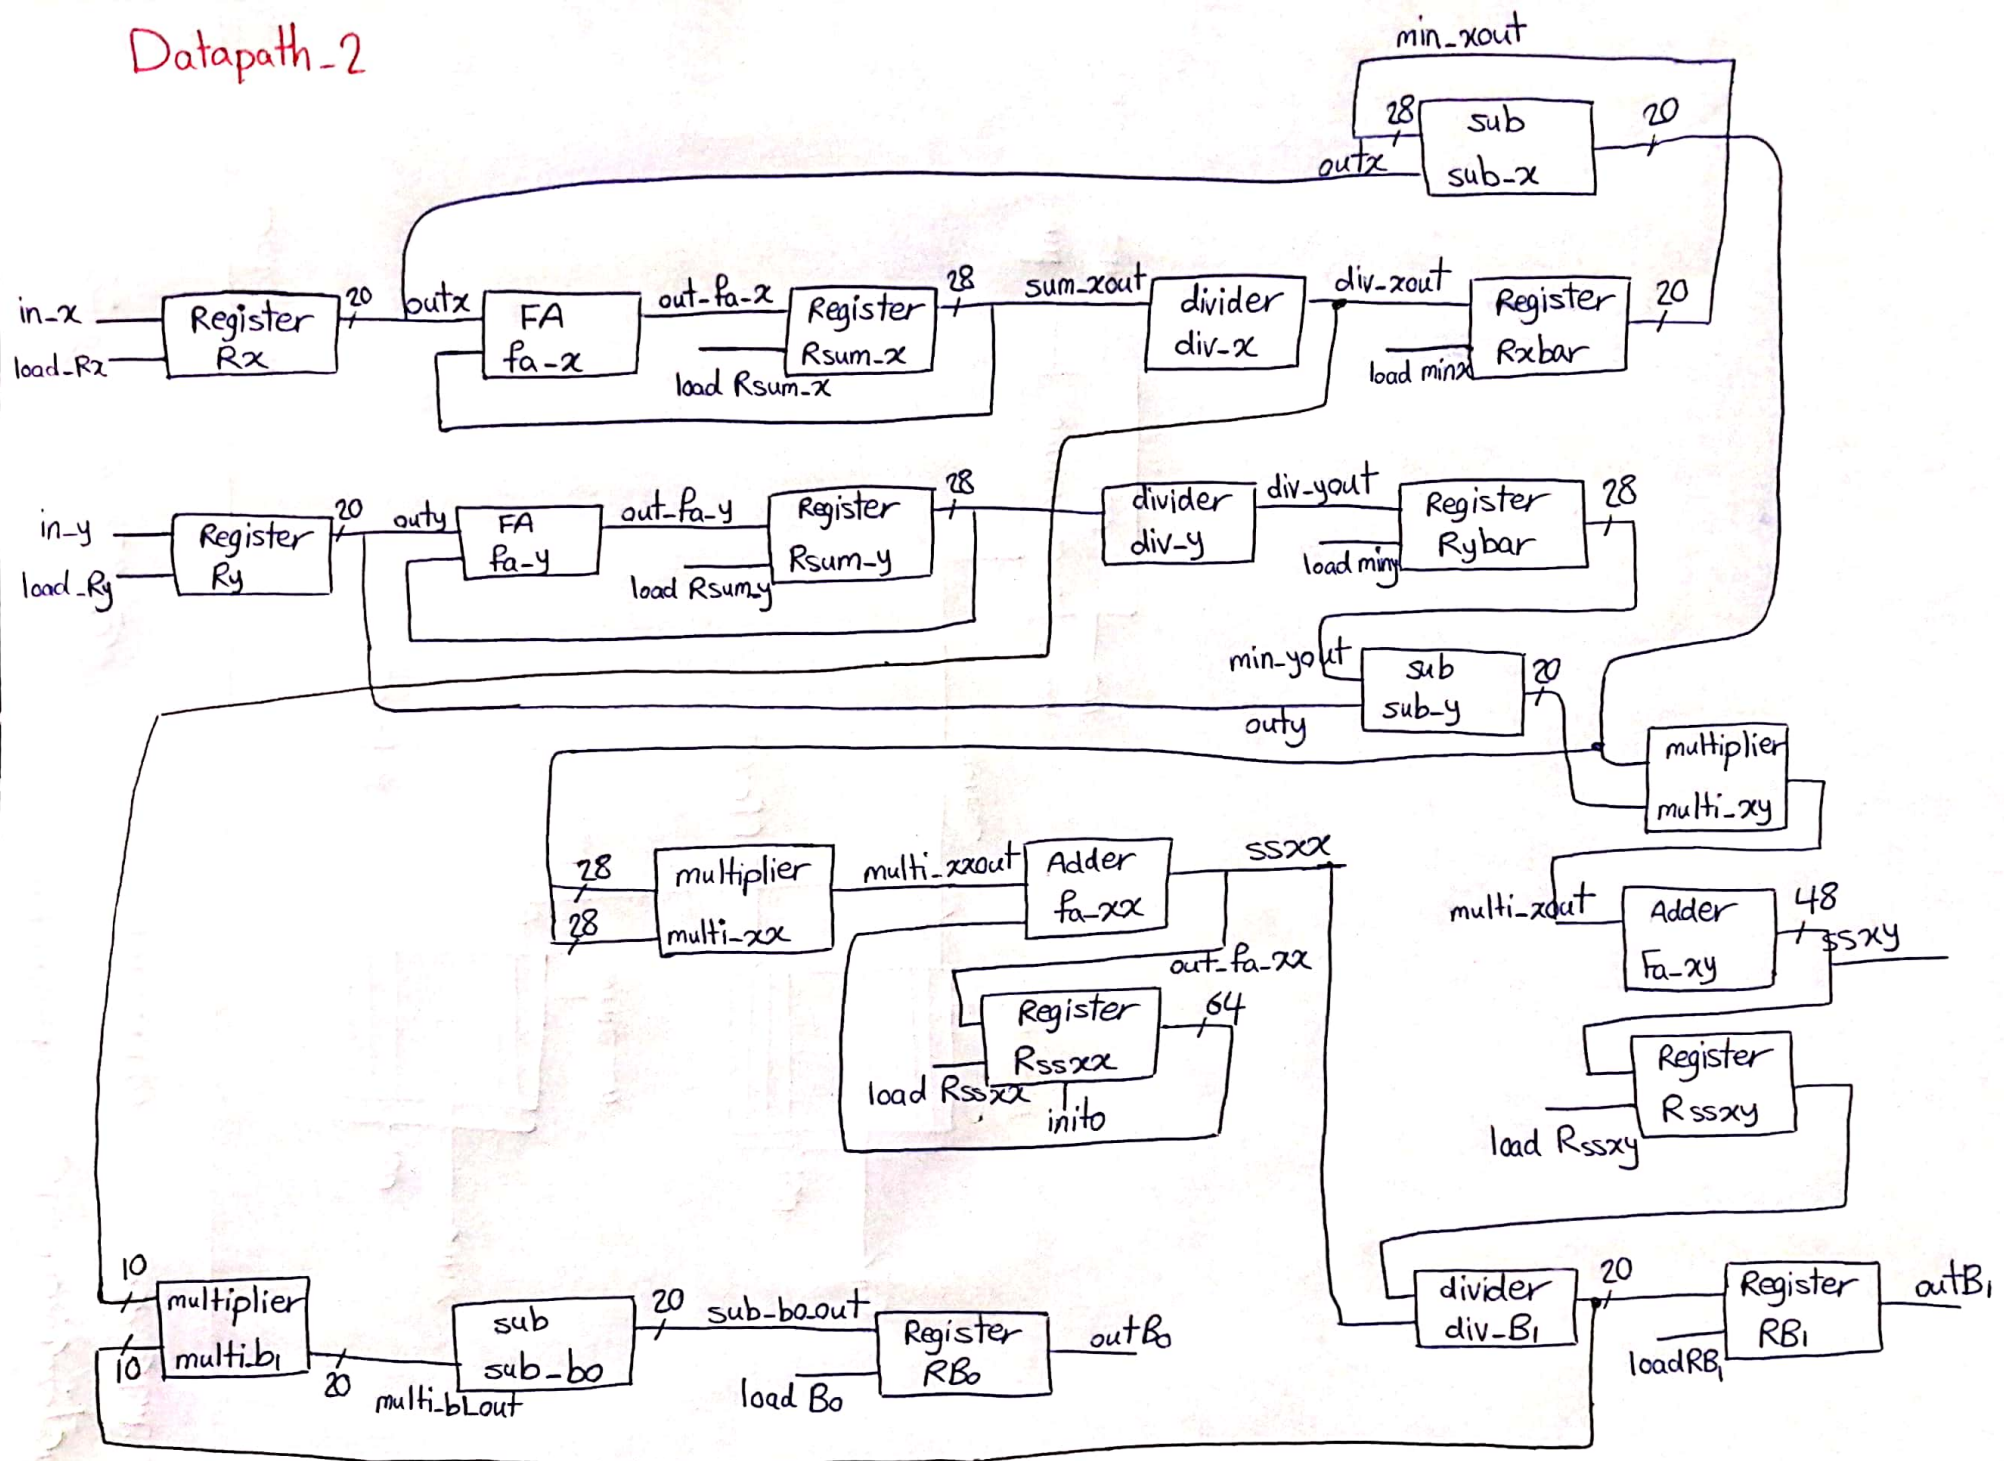 Datapath_2
min_xout
28
sub
sub_x
20
outx
in_x
load_Rx
Register
Rx
20
outx
FA
fa_x
out_fa_x
Register
Rsum_x
load Rsum_x
28
sum_xout
divider
div_x
div_xout
Register
Rxbar
load minx
20
in_y
load_Ry
Register
Ry
20
outy
FA
fa_y
out_fa_y
Register
Rsum_y
load Rsum_y
28
divider
div_y
div_yout
Register
Rybar
load miny
28
min_yout
sub
sub_y
20
outy
multiplier
multi_xy
28
28
multiplier
multi_xx
multi_xxout
Adder
fa_xx
ssxx
out_fa_xx
Register
Rssxx
load Rssxx
64
inito
multi_xout
Adder
Fa_xy
48
ssxy
Register
Rssxy
load Rssxy
10
10
multiplier
multi_b1
20
multi_b1_out
sub
sub_b0
20
sub_bo_out
Register
RB0
load B0
outB0
divider
div_B1
20
Register
RB1
loadRB1
outB1